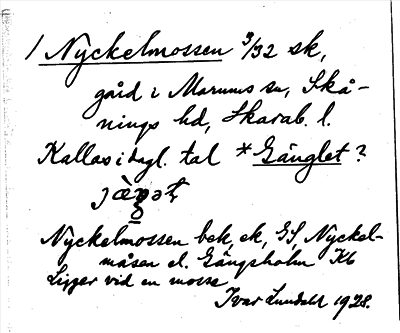 1 Nyckelmossen 3/32 sk,
gård i Marums sn, Skå-
nings hd, Skarab. l.
Kallas i dagl. tal *Gånglet?
Nyckelmossen bek, ek, GS, Nyckel-
måsen el. Gångsholm Kb
Ligger vid en mosse
Ivar Lundahl 1928.